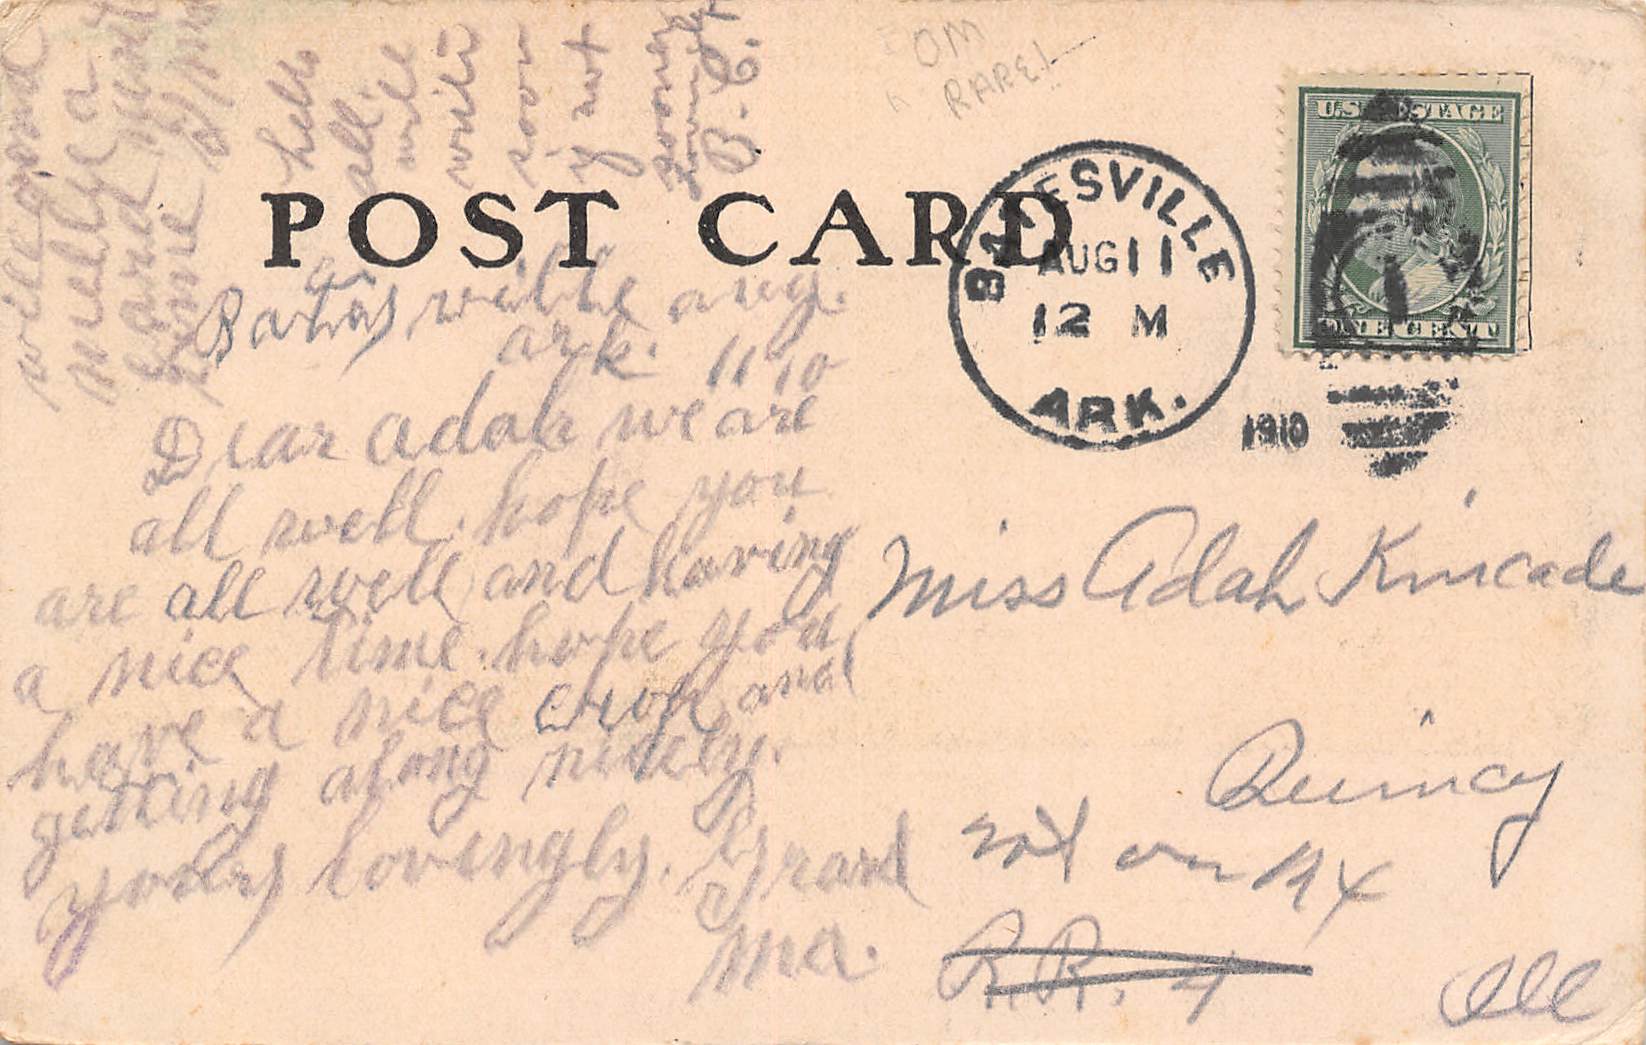 OM
RARE!
U.S. POSTAGE
ONE CENT
POST CARD
BATESVILLE
AUG 11
12 M
ARK.
1910
Batesville aug.
ark. 11 10
Dear adah we are
all well. hope you
are all well and having
a nice time. hope you
have a nice crop and
getting along nicely.
yours lovingly. Grand
Ma.
hello
all.
will
write
soon
if not
sooner
B. C.
will send
nelly a
card next
time
Miss Adah Kincade
Quincy
not on R 4
R.R. 4
Ill